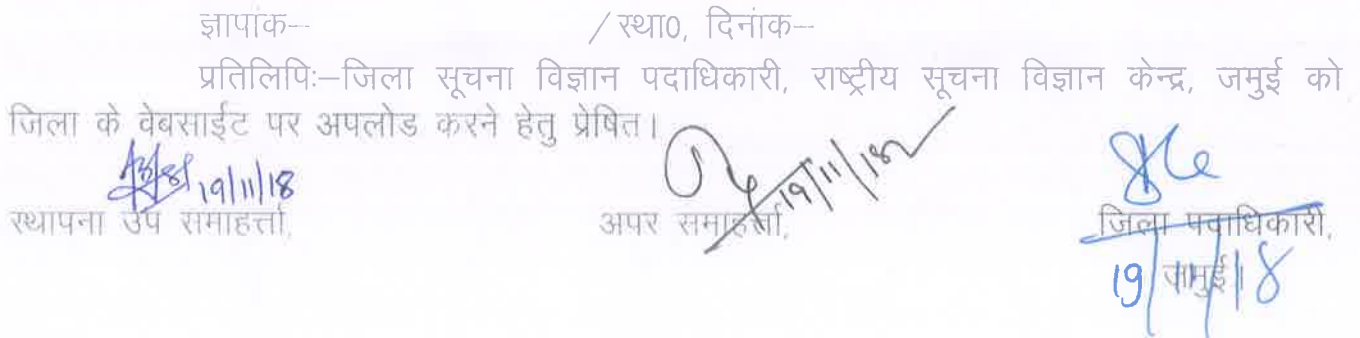 ज्ञापांक– /स्था0, दिनांक–
प्रतिलिपिः–जिला सूचना विज्ञान पदाधिकारी, राष्ट्रीय सूचना विज्ञान केन्द्र, जमुई को
जिला के वेबसाईट पर अपलोड करने हेतु प्रेषित।
19/11/18 19/11/18
स्थापना उप समाहर्त्ता, अपर समाहर्त्ता, जिला पदाधिकारी,
19/11/18 जमुई।